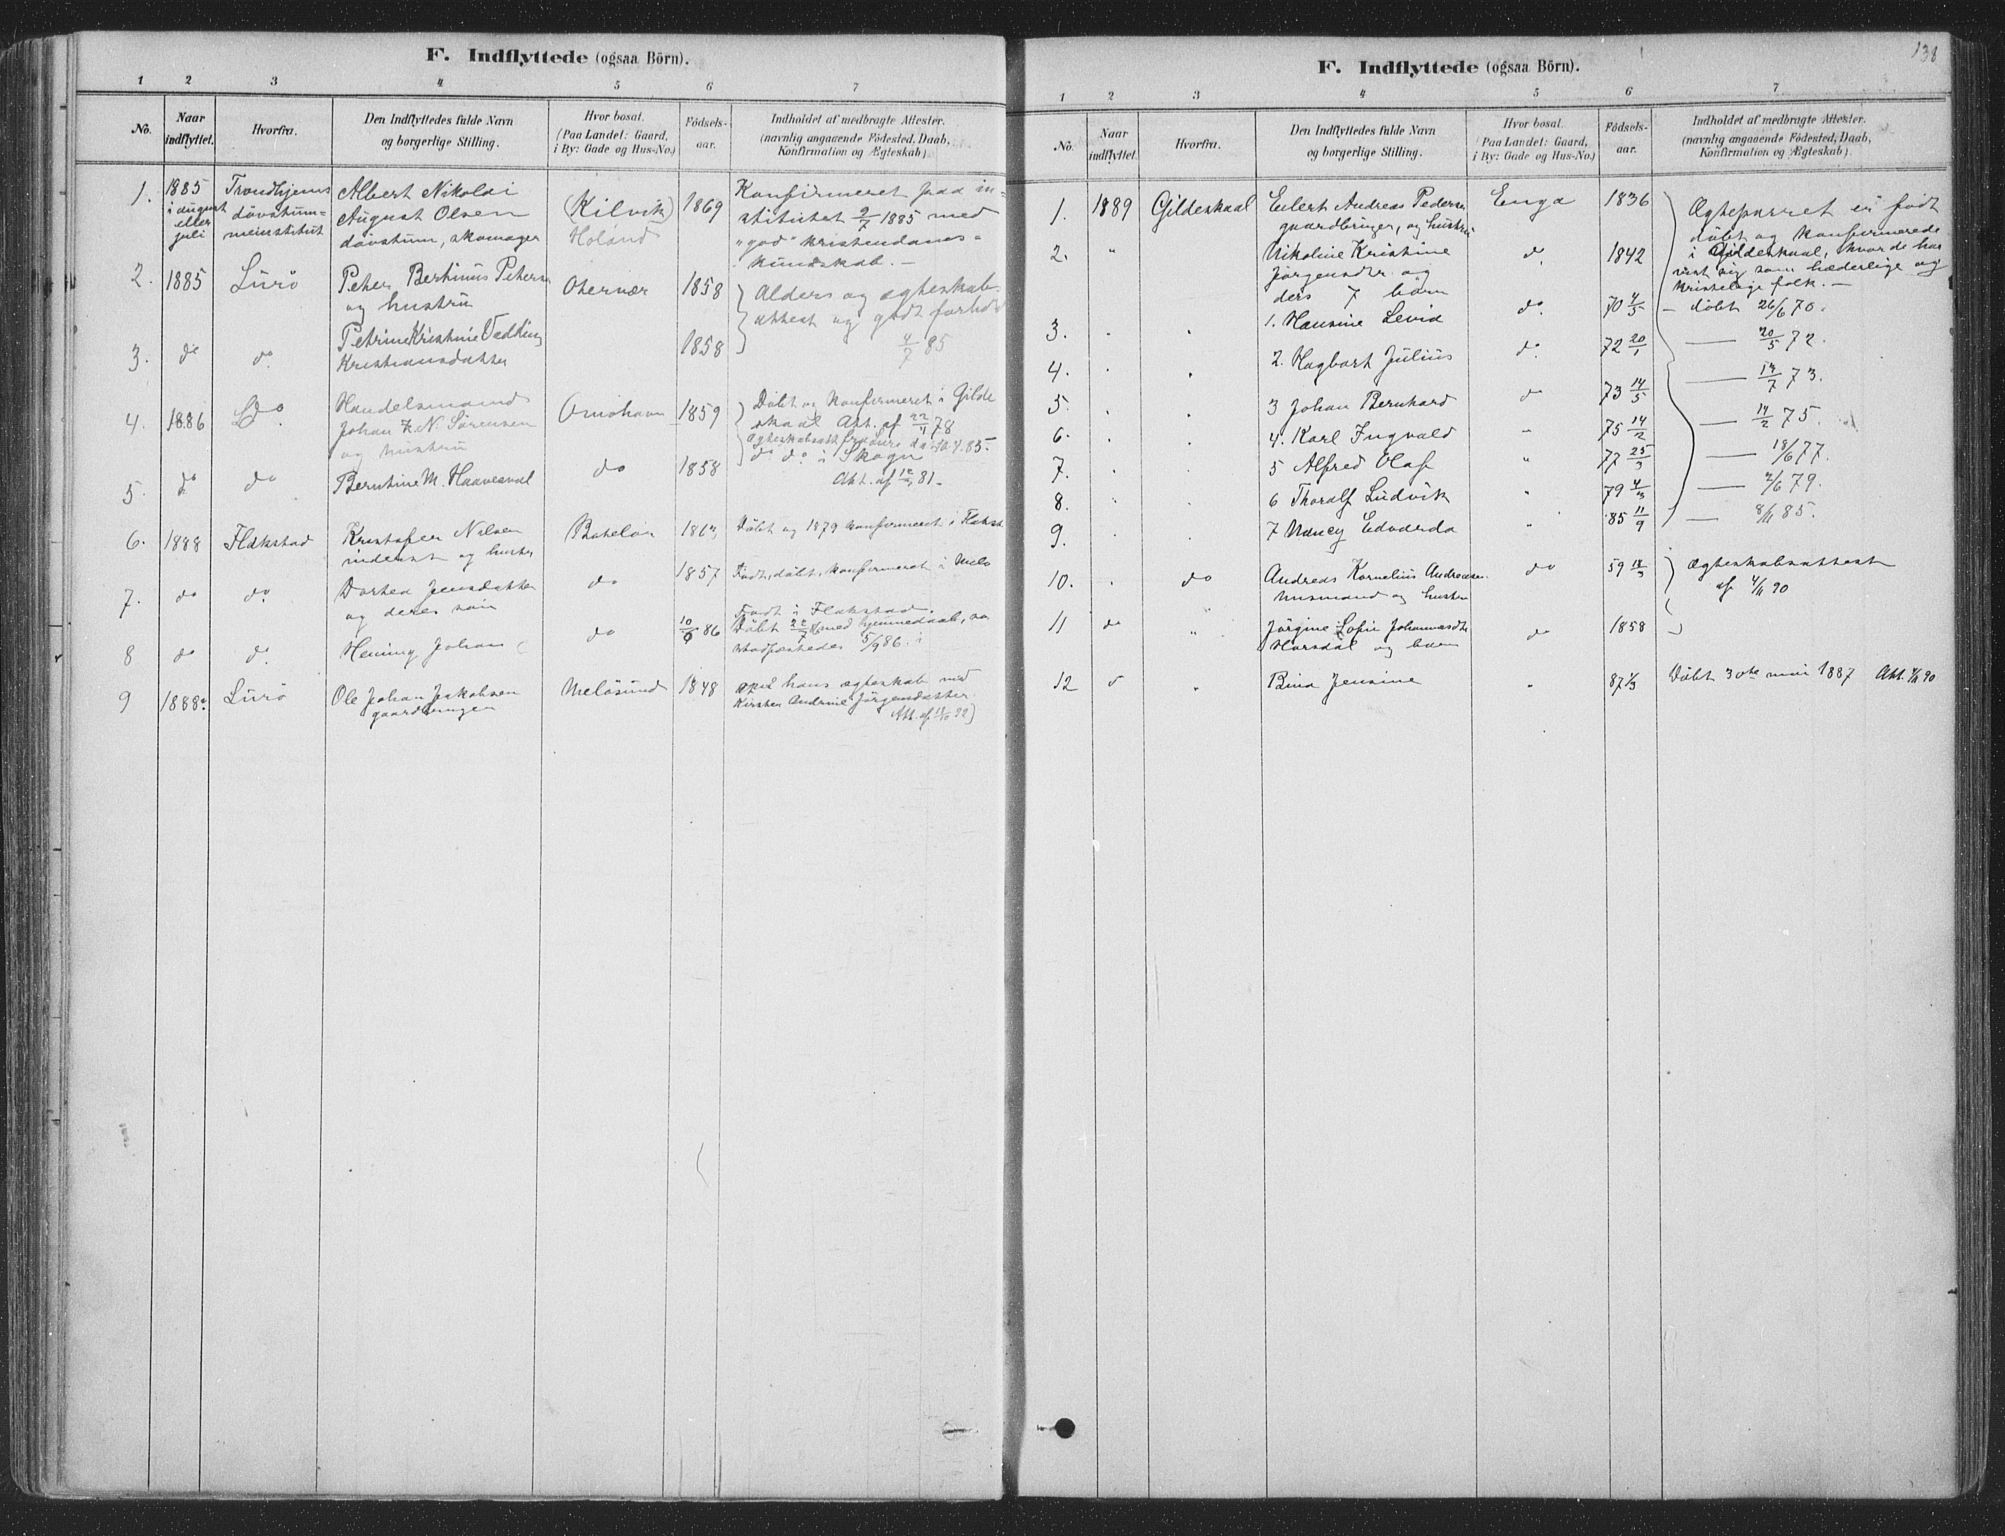 F. Indflyttede (ogsaa Börn).
1 2 3 4 5 6 7
No. Naar indflyttet. Hvorfra. Den Indflyttedes fulde Navn og borgerlige Stilling. Hvor bosat. (Paa Landet: Gaard, i By: Gade og Hus-No.) Fødsels-aar. Indholdet af medbragte Attester. (navnlig angaaende Fødested, Daab, Konfirmation og Ægteskab).
1. 1885 Trondhjems Albert Nikolai (Kilvik) 1869 Konfirmeret paa in-
i august dövstum- August Olsen Holand stitutet 2/7 1885 med
eller juli meinstitut dövstum, skomager "god" kristendoms-
kundskab. —
2. 1885 Lurö Peter Bertinus Peters Otervær 1858 Alders og ægteskabs-
og hustru attest og godt forhold
Petrine Kristine 1858 4/7 85
3. do do Kristiansdatter
4. 1886 do Handelsmand 1859 Döbt og konfirmeret i Gilde
Johan Z. N. Sörensen skaal Att. af 22/4 78
og hustru
5. do do Berntine M. Haavesval do 1858 do do i Skogn
Att. af 12/ 81.
6. 1888 Flakstad Kristofer Nilsen Döbt og 1879 konfirmeret i Flakst
inderst og hustru
7. do do Dortea Jensdatter do 1857 Födt, döbt, konfirmeret i Melö
og deres sön Födt i Flakstad.
8 do do Hening Johan do 86 Döbt 22/7 med hjemmedaab,
stadfæstedes 5/9 86.
9 1888 Lurö Ole Johan Jakobsen Melösund 1848 hans ægteskab med
gaardbruger Kirsten Andrine Jörgensdatter
F. Indflyttede (ogsaa Börn).
138
1 2 3 4 5 6 7
No. Naar indflyttet. Hvorfra. Den Indflyttedes fulde Navn og borgerlige Stilling. Hvor bosat. (Paa Landet: Gaard, i By: Gade og Hus-No.) Fødsels-aar. Indholdet af medbragte Attester. (navnlig angaaende Fødested, Daab, Konfirmation og Ægteskab).
1. 1889 Gildeskaal Eilert Andreas Peders Enga 1836 Ægteparret er födt
gaardbruger, og hustru döbt og konfirmerede
2. " Nikoline Kristine do. 1842 i Gildeskaal, hvor de har
Jörgensdtr og vist sig som hæderlige og
ders 7 börn kristelige folk. —
3. 1. Hansine Levid do. 70 4/5 — döbt 26/6 70.
4. 2. Hagbart Julius do. 72 20/1 — 20/5 72.
5. 3 Johan Bernhard do 73 14/5 — 13/7 73.
6. 4. Karl Ingvald " 75 14/2 — 14/2 75.
7. 5 Alfred Olaf " 77 25/3 — 18/6 77.
8. 6 Thoralf Ludvik " 79 4/3 — 2/6 79.
9. 7 Nancy Edvarda " 85 11/9 — 8/11 85.
10. do Andreas Kornelius Andreasen do 59 Ægteskabsattest
husmand og hustru af 4/11 90
11 do " Jörgine Sofie Johannesdtr do 1858
Horsdal og barn
12 Bina Jensine 87 1/3 Döbt 30te mai 1887 Att. 4/11 90